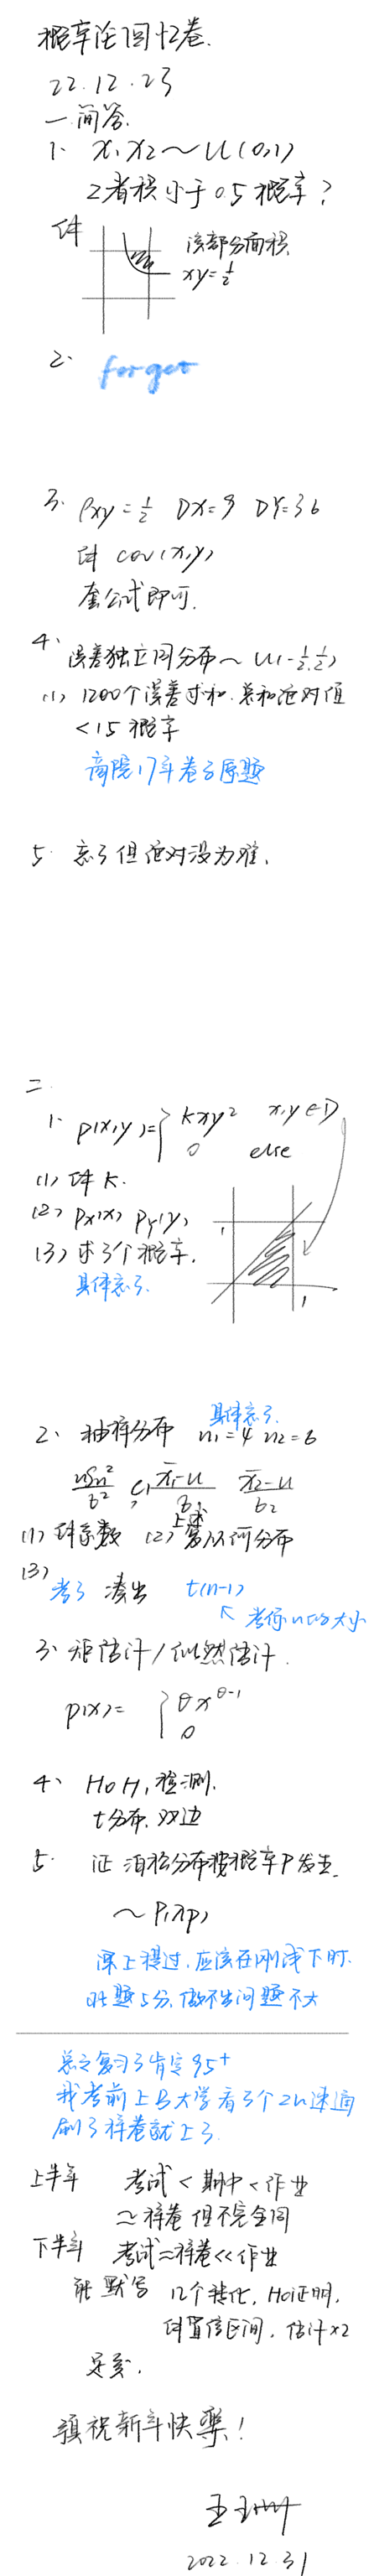 概率论回忆卷.
22.12.23
一.问答.
1. x₁ x₂ ~ U(0,1)
2者积小于0.5概率?
求
该部分面积
xy=½
2. forget
3. ρxy=½ DX=9 DY=36
求 cov(x,y)
套公式即可.
4. 误差独立同分布 ~ U(-½,½)
(1) 1200个误差求和.总和绝对值
<15概率
高院17年卷子原题
5. 忘了但绝对没为难.
二
1. p(x,y)={ kxy² x,y∈D
0 else
(1) 求k.
(2) Px(x) PY(y)
(3) 求3个概率.
具体忘了.
1
1
2. 抽样分布 具体忘了. n₁=4 n₂=6
(1) 求系数 (2) 上述服从何分布
(3)
考了 凑出 t(n-1)
↖ 考你n的大小
3. 矩估计/似然估计.
p(x)= { θx^(θ-1)
0
4. H₀H₁检测.
t分布.双边
5. 证 泊松分布按概率P发生.
~P(λp)
课上提过.应该在刚线下时.
此题5分,做不出问题不大
总之复习了肯定95+
我考前上B大学看了个2h速通
刷了样卷就上了.
上半年 考试<期中<作业
≈样卷但不完全同
下半年 考试≈样卷<<作业
能默写 12个转化,H₀证明,
求置信区间,估计×2
足矣.
预祝新年快乐!
2022.12.31